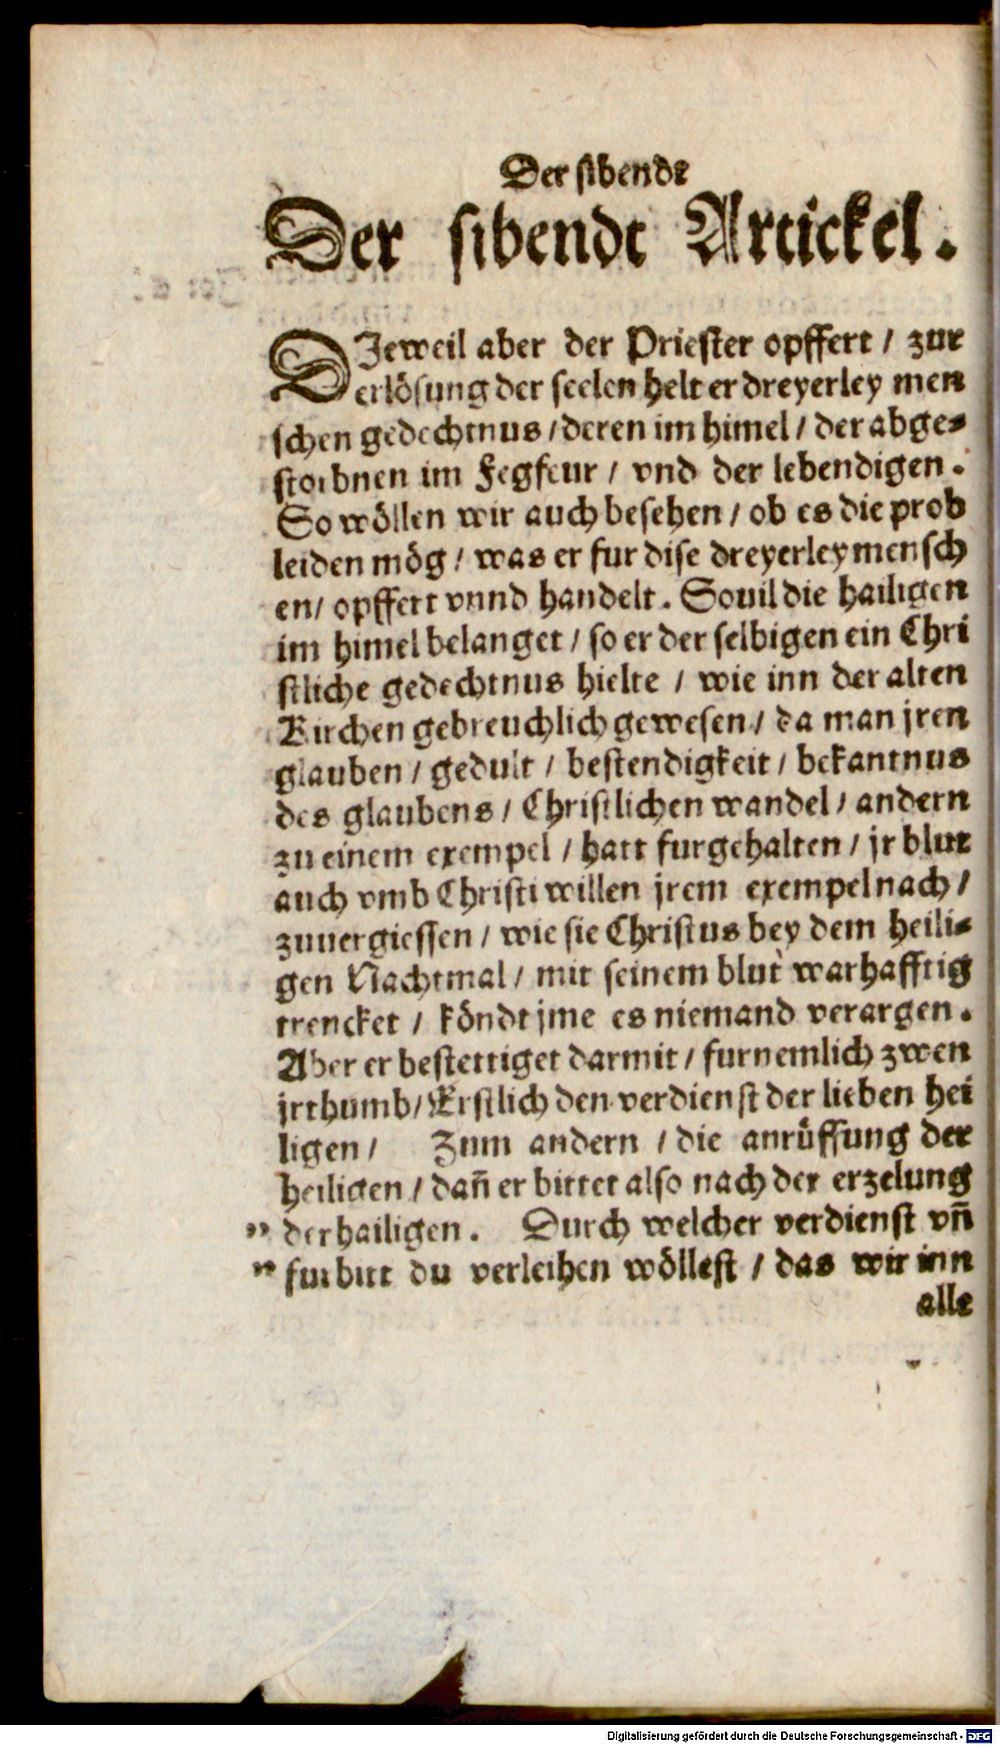 Der sibende
Der sibendt Artickel.
DJeweil aber der Priester opffert / zur
erlösung der seelen helt er dreyerley men
schen gedechtnus / deren im himel / der abge-
storbnen im Fegfeur / vnd der lebendigen.
So wöllen wir auch besehen / ob es die prob
leiden mög / was er fur dise dreyerley mensch
en / opffert vnnd handelt. Souil die hailigen
im himel belanget / so er der selbigen ein Chri
stliche gedechtnus hielte / wie inn der alten
Kirchen gebreuchlich gewesen / da man jren
glauben / gedult / bestendigkeit / bekantnus
des glaubens / Christlichen wandel / andern
zu einem exempel / hatt furgehalten / jr blut
auch vmb Christi willen jrem exempel nach /
zuuergiessen / wie sie Christus bey dem heili-
gen Nachtmal / mit seinem blut warhafftig
trencket / köndt jme es niemand verargen.
Aber er bestettiget darmit / furnemlich zwen
jrthumb / Erstlich den verdienst der lieben hei
ligen / Zum andern / die anrüffung der
heiligen / dañ er bittet also nach der erzelung
„ der hailigen. Durch welcher verdienst vñ
„ furbitt du verleihen wöllest / das wir inn
alle
Digitalisierung gefördert durch die Deutsche Forschungsgemeinschaft - DFG